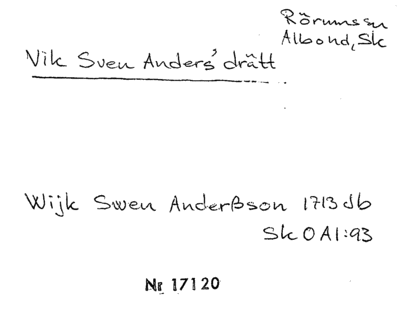 Rörums sn
Albo hd, Sk
Vik Sven Anders' drätt
Wijk Swen Anderßson 1713 db
Sk O AI:93
Nr 17120